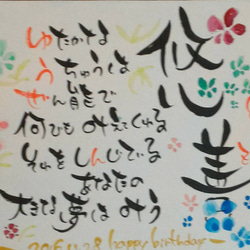 悠心善
ゆたかな
うちゅうは
ぜん能で
何でも叶えてくれる
それをしんじている
あなたの
大きな夢は叶う
2016.4.28 happy birthday